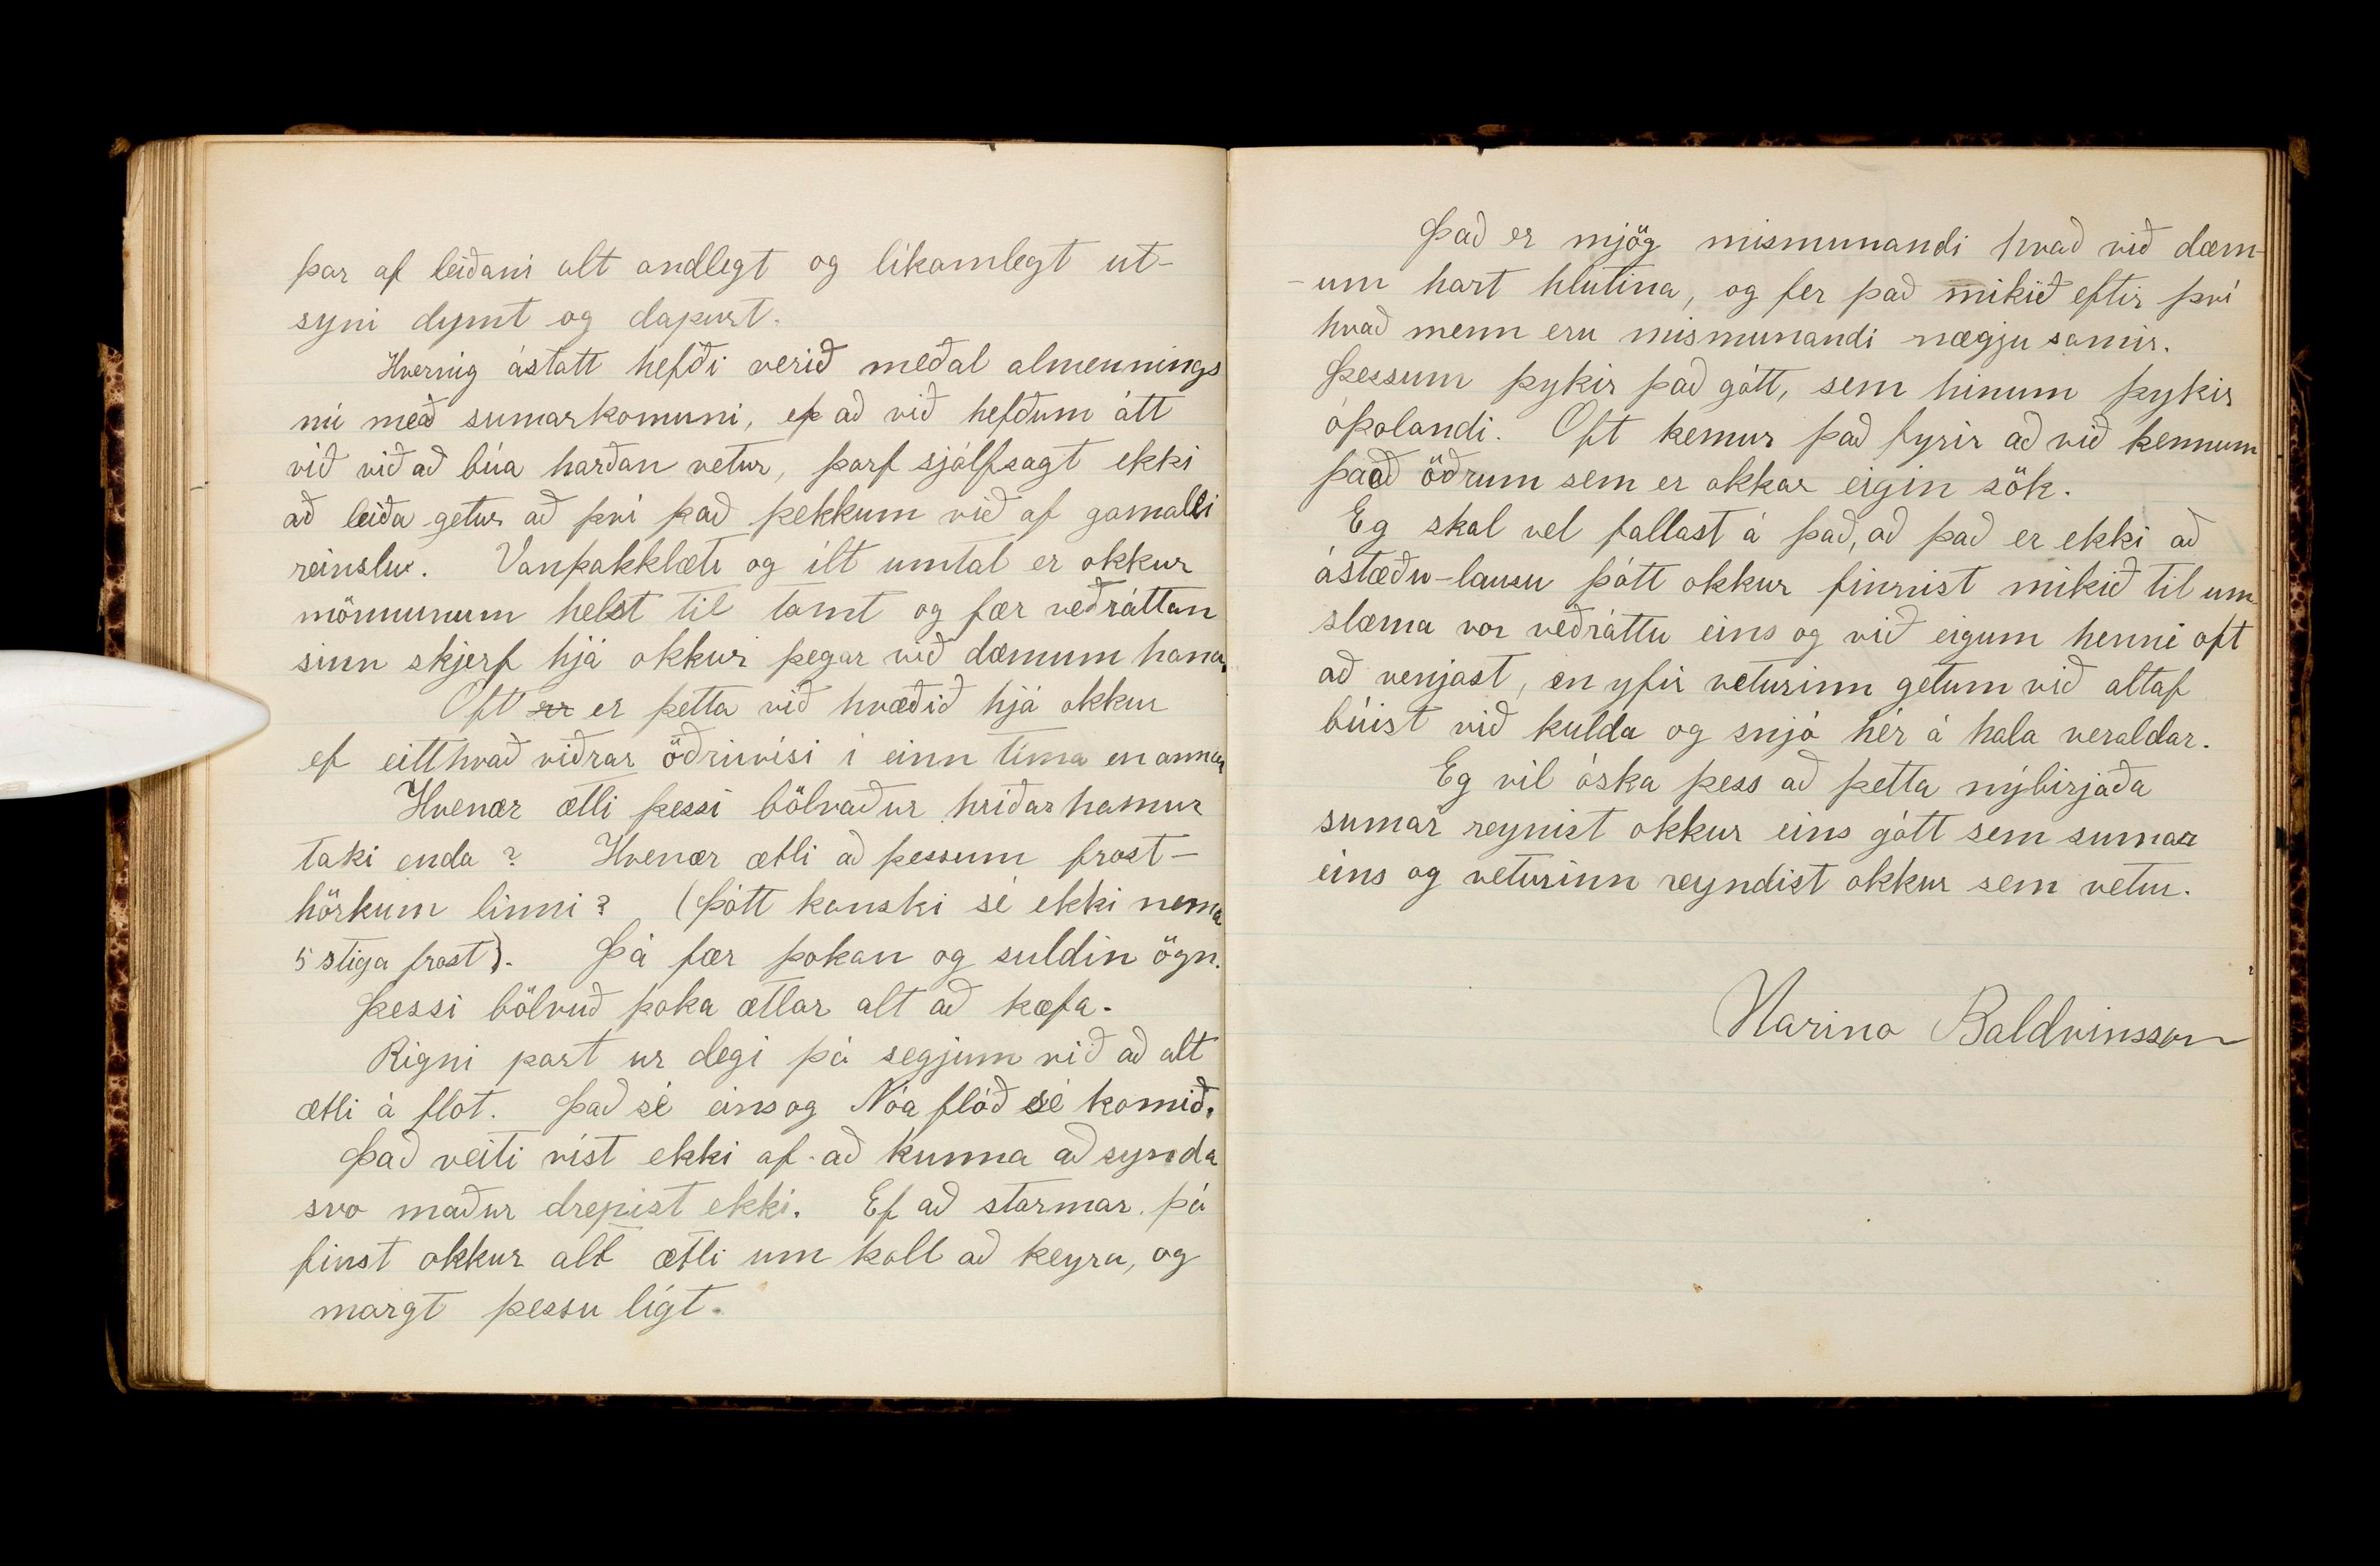 þar af leiðani alt andlegt og líkamlegt ut-
syni dymt og dapurt.
Hvernig ástatt hefði verið meðal almennings
nú með sumarkomuni, ef að við hefðum átt
við við að búa harðan vetur, þarf sjálfsagt ekki
að leiða getur að því það þekkum við af gamalli
reinslu. Vanþakklæti og ilt umtal er okkur
mönnunum helst til tamt og fær veðráttan
sinn skjerf hjá okkur þegar við dæmum hana.
Oft er er þetta við hvæðið hjá okkur
ef eitthvað viðrar öðruvísi í einn tíma en annan
Hvenær ætli þessi bölvaður hríðar hamur
taki enda? Hvenær ætli að þessum frost-
hörkum linni? (Þótt kanski sé ekki nema
5 stiga frost). Þá fær þokan og suldin ögn.
Þessi bölvuð þoka ætlar alt að kæfa.
Rigni part ur degi þá segjum við að alt
ætli á flot. Það sé eins og Nóa flóð sé komið.
Það veiti víst ekki af að kunna að synda
svo maður drepist ekki. Ef að stormar þá
finst okkur alt ætli um koll að keyra, og
margt þessu lígt.
Það er mjög mismunandi hvað við dæm-
-um hart hlutina, og fer það mikið eftir því
hvað menn eru mismunandi nægju samir.
Þessum þykir það gótt, sem hinum þykir
óþolandi. Oft kemur það fyrir að við kennum
það öðrum sem er okkar eigin sök.
Eg skal vel fallast á það, að það er ekki að
ástæðu-lausu þótt okkur finnist mikið til um
slæma vor veðráttu eins og við eigum henni oft
að venjast, en yfir veturinn getum við altaf
búist við kulda og snjó hér á hala veraldar.
Eg vil óska þess að þetta nýbirjaða
sumar reynist okkur eins gótt sem sumar
eins og veturinn reyndist okkur sem vetur.
Marino Baldvinsson